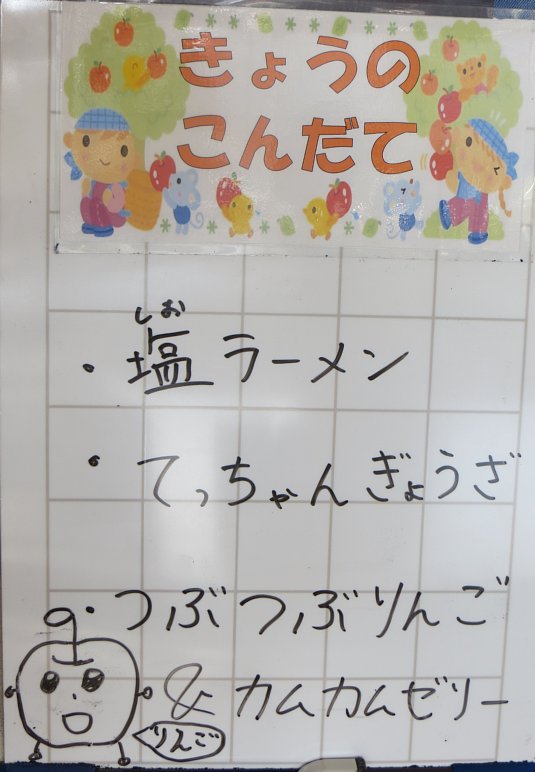 きょうの
こんだて
しお
・塩ラーメン
・てっちゃんぎょうざ
・つぶつぶりんご
&カムカムゼリー
りんご